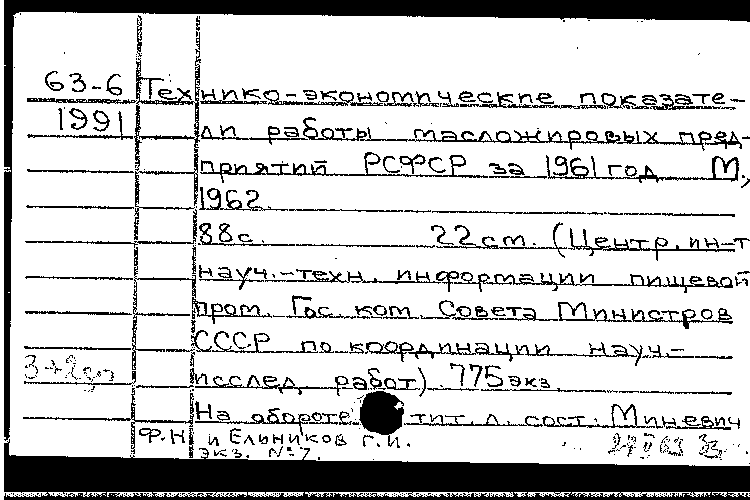 63-6 Технико-экономические показате-
1991 ли работы масложировых пред-
приятий РСФСР за 1961 год М.,
1962.
88с. 22 см. (Центр. ин-т
науч.-техн. информации пищевой
пром. Гос. ком. Совета Министров
СССР по координации науч.-
исслед. работ). 775 экз.
На обороте тит. л. сост.: Миневич
Ф.Н. и Ельников Г.И.
экз. № 7.